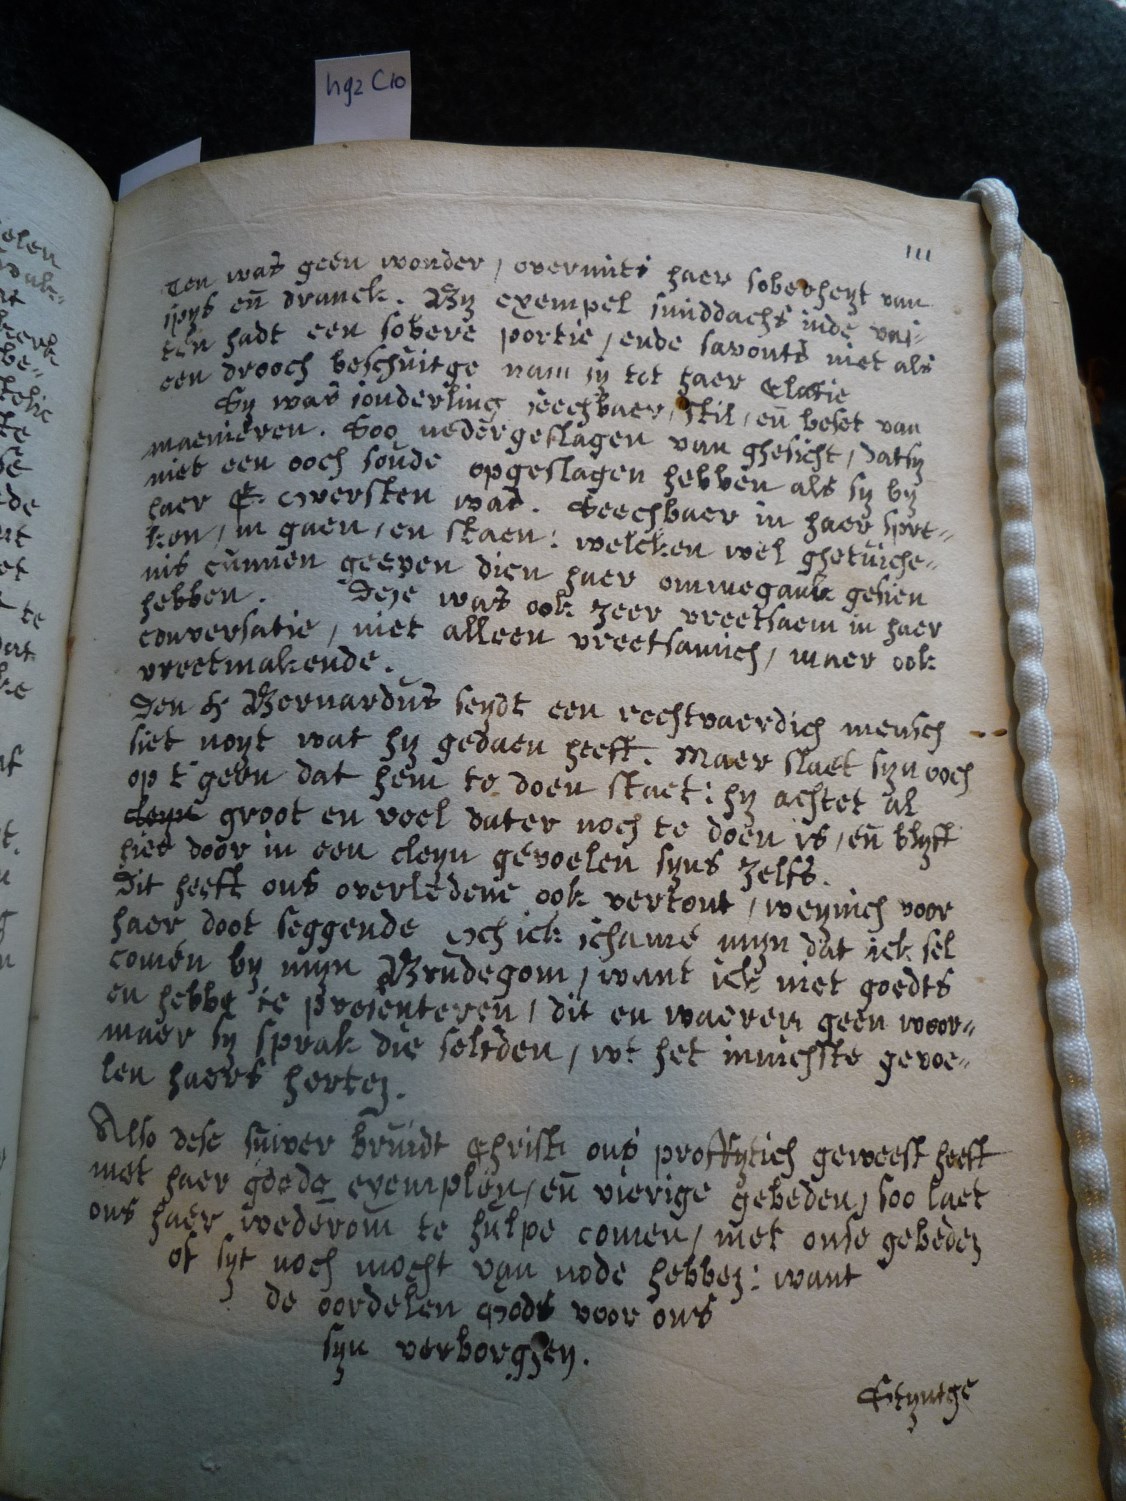 hg2 C10
111
ten was geen wonder / overmits haer soberheyt van
spys en̄ dranck. By exempel smiddachs inde vas-
ten hadt een sobere portie / ende savonts niet als
een drooch beschuitge nam sy tot haer Clatie
Sy was sonderling seechbaer / stil / en̄ beset van
maenieren. Soo nedergeslagen van ghesicht / datsy
niet een ooch soude opgeslagen hebben als sy by
haer E. Oversten was. Seechbaer in haer spre-
ken / in gaen / en staen: welcken wel ghetuiche-
nis cunnen geeven dien haer ommegank gesien
hebben. Dese was ook zeer vreetsaem in haer
conversatie / niet alleen vreetsamich / maer ook
vreetmakende.
Den H Bernardus seydt een rechtvaerdich mensch
siet noyt wat hy gedaen heeft. Maer slaet syn ooch
op t geen dat hem te doen staet: hy achtet al
cleyn groot en veel dater noch te doen is / en̄ blyft
hier door in een cleyn gevoelen syns zelfs.
Dit heeft ons overledene ook vertont / weynich voor
haer doot seggende Och ick schame myn dat ick sel
comen by myn Brudegom / want ick niet goedts
en hebbe te presenteren / dit en waeren geen woor-
maer sy sprak die selfden / wt het innichste gevoe-
len haers herten.
Also dese suiver bruidt Christi ons proffytich geweest heeft
met haer goede exemplen / en̄ vierige gebeden / soo laet
ons haer wederom te hulpe comen / met onse gebeden
of syt noch mocht van node hebben: want
de oordelen Gods voor ons
syn verborgen.
Styntge